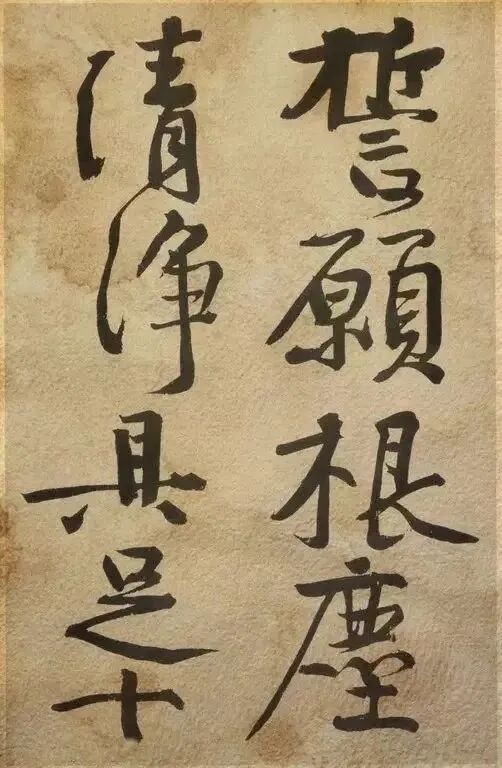 誓願根塵
清淨具足十